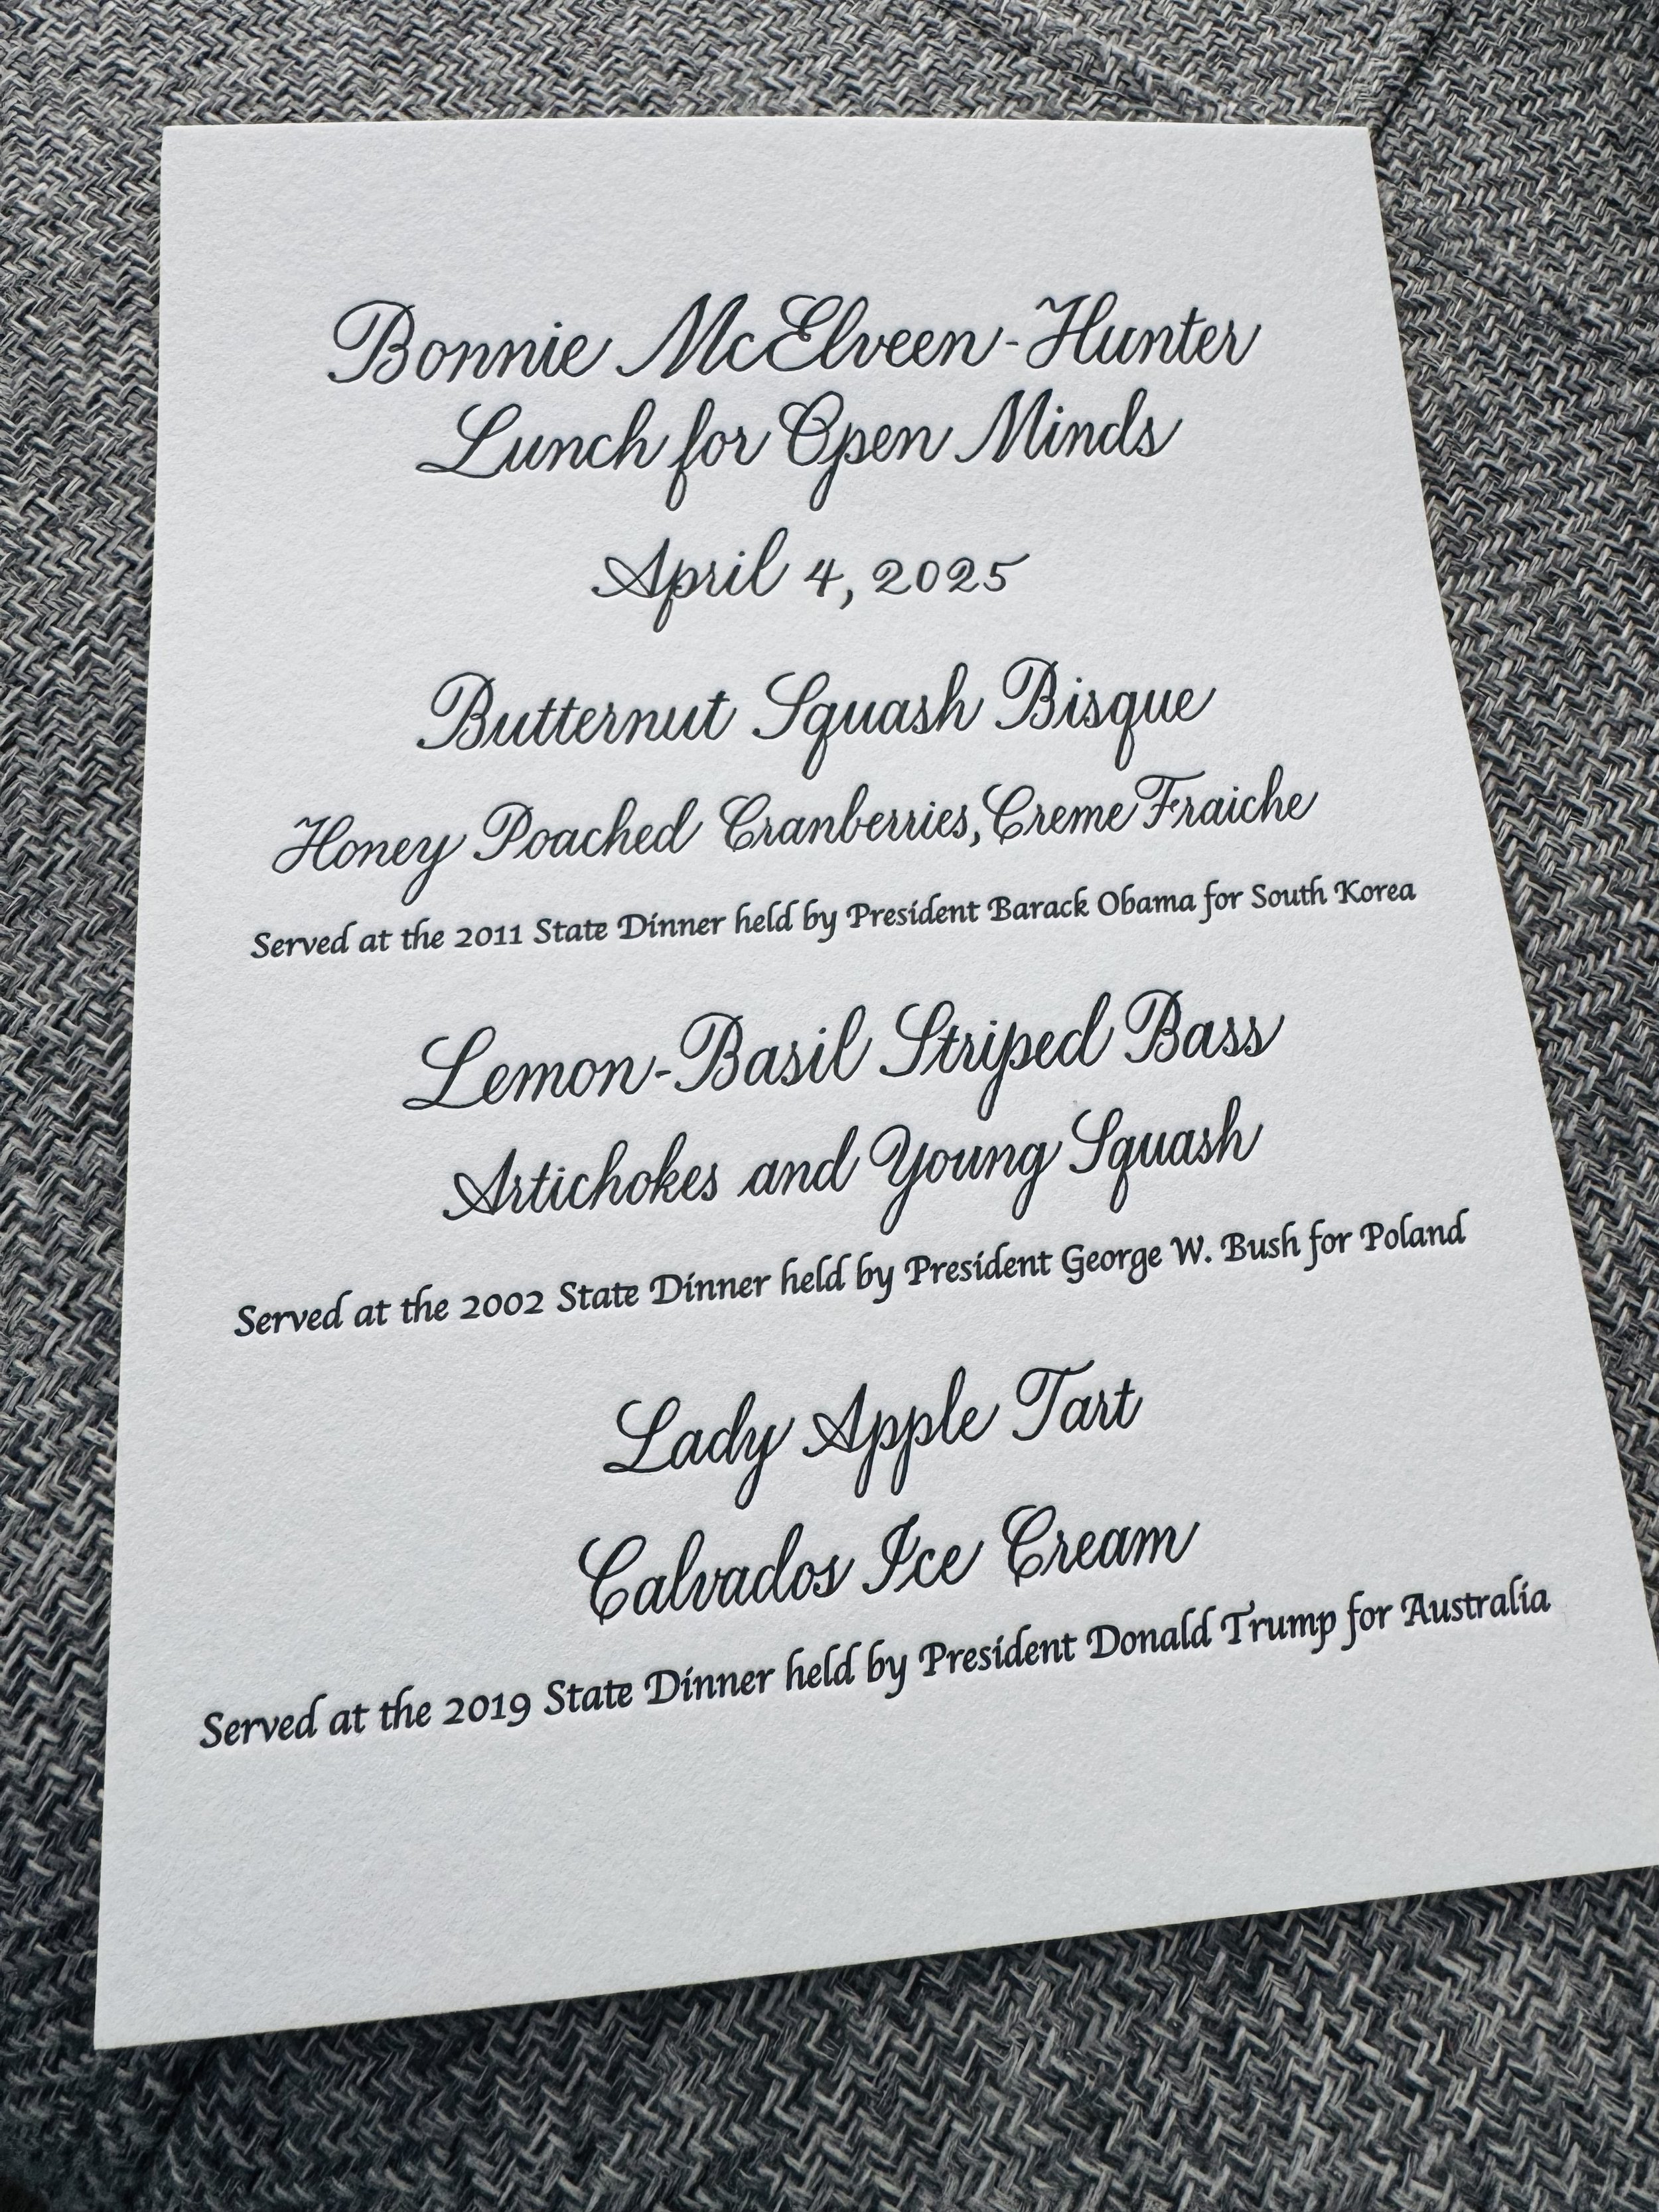 Bonnie McElveen-Hunter
Lunch for Open Minds
April 4, 2025
Butternut Squash Bisque
Honey Poached Cranberries, Creme Fraiche
Served at the 2011 State Dinner held by President Barack Obama for South Korea
Lemon-Basil Striped Bass
Artichokes and Young Squash
Served at the 2002 State Dinner held by President George W. Bush for Poland
Lady Apple Tart
Calvados Ice Cream
Served at the 2019 State Dinner held by President Donald Trump for Australia